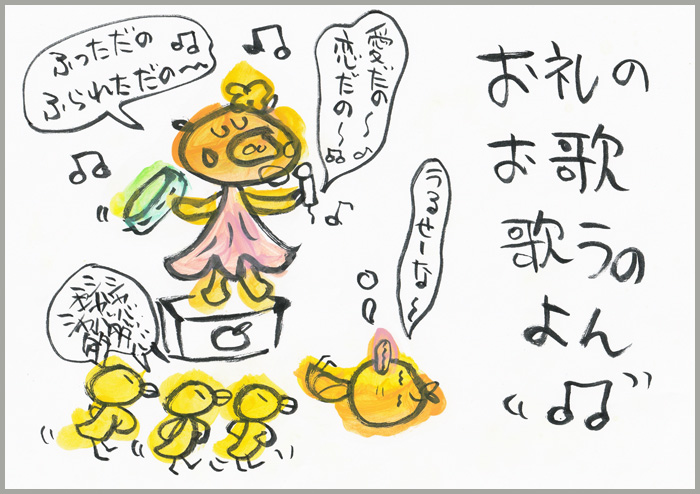 お礼の
お歌
歌うの
よん
愛だの〜
恋だの〜
ふっただの
ふられただの〜
うるせーな〜